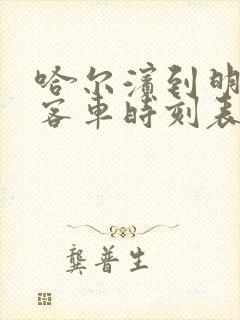 哈尔滨到明
客车时刻表
龚普生